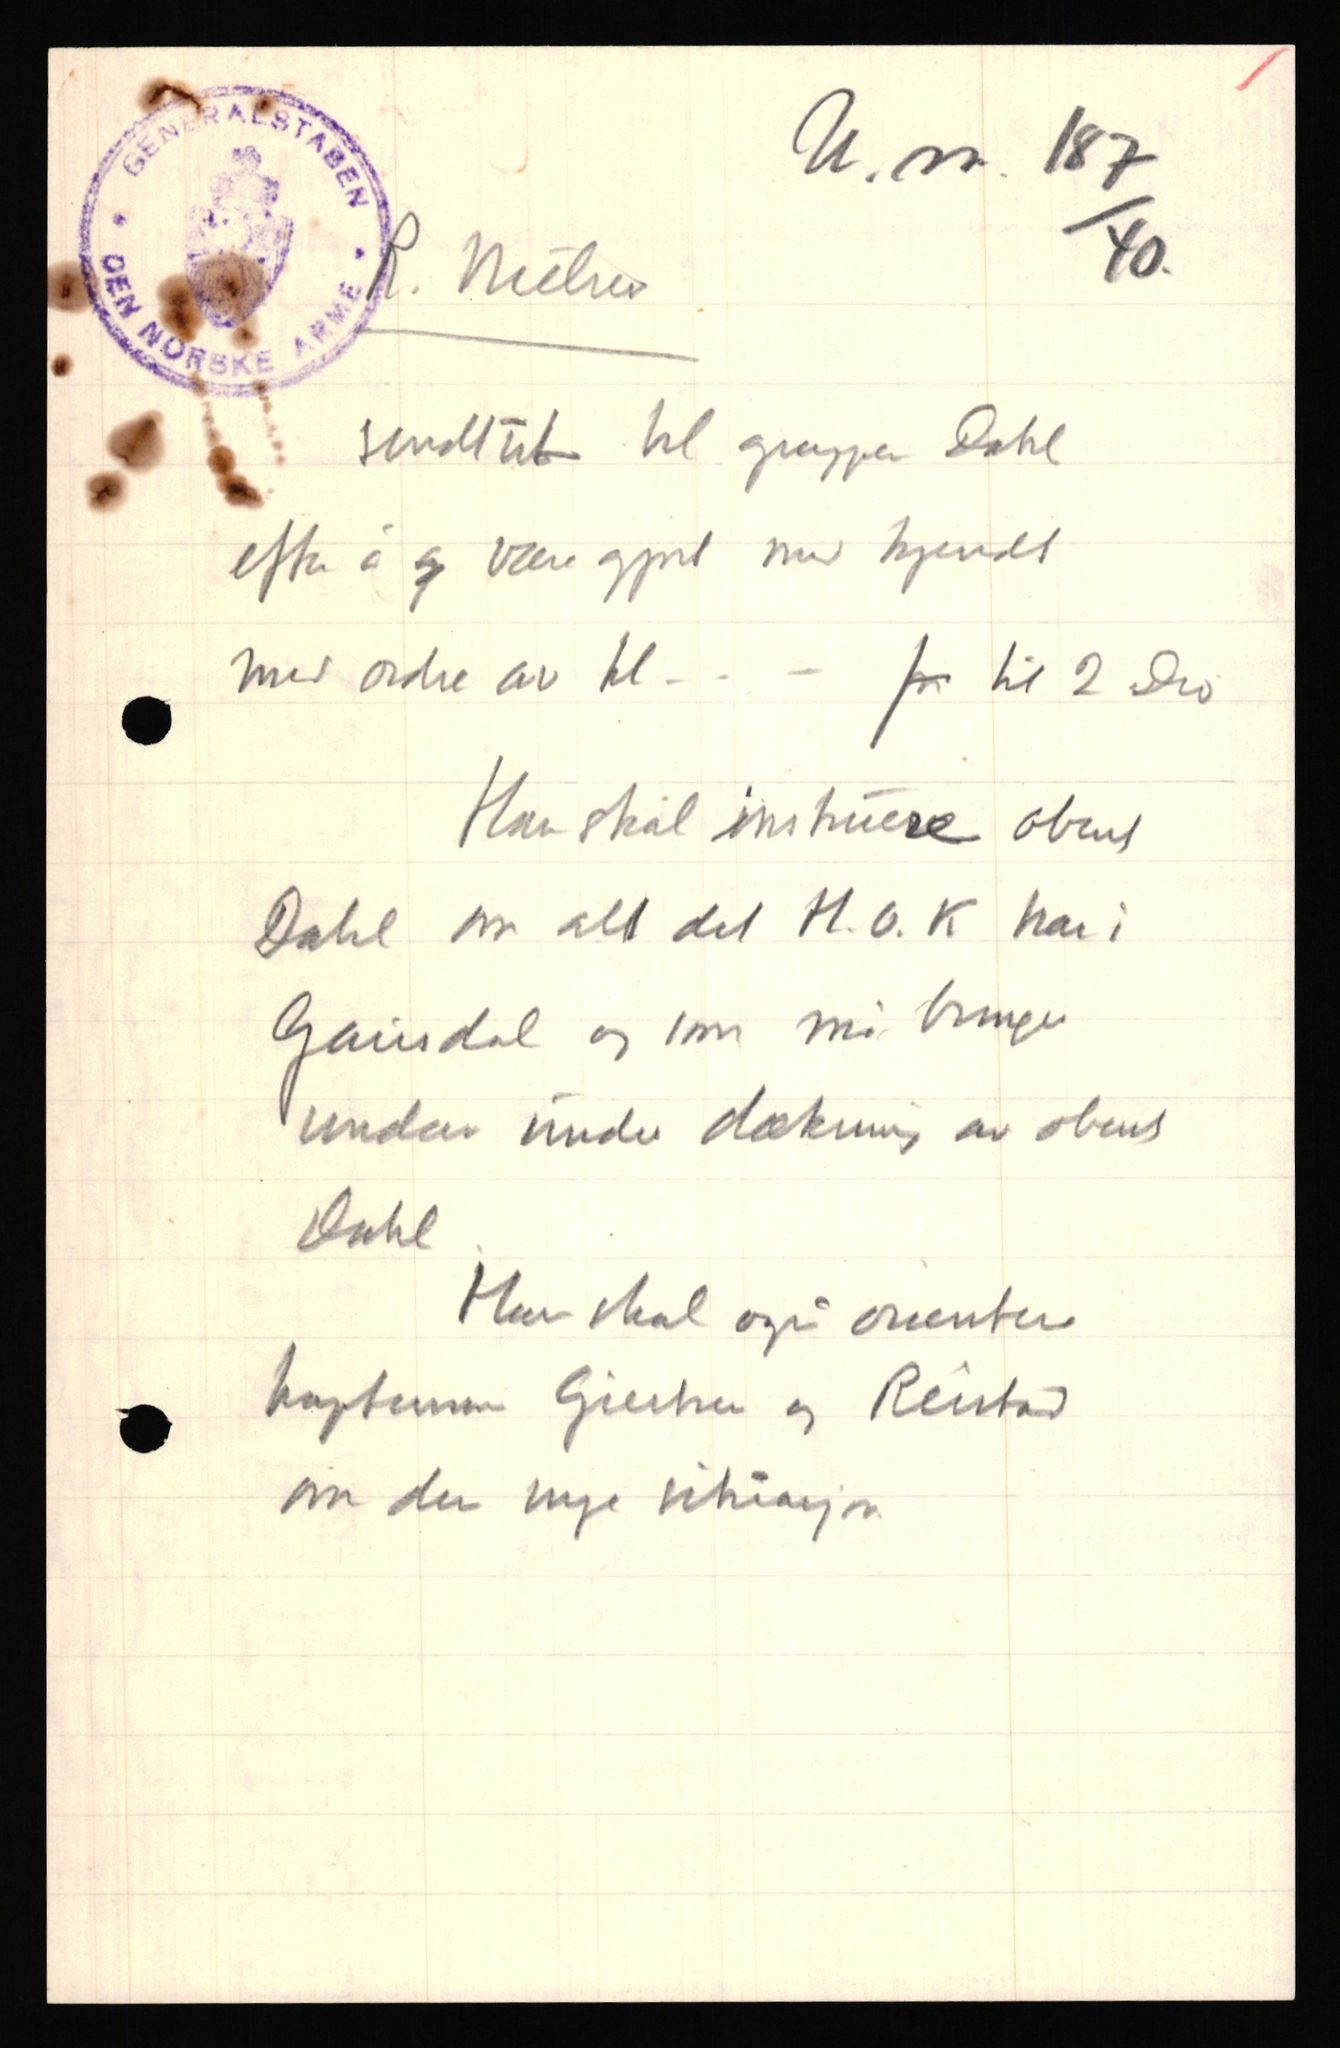 GENERALSTABEN
DEN NORSKE ARME
U. nr. 187
/40.
R. Nielsen
sendt ut til gruppen Dahl
efter å g være gjort med kjendt
med ordre av kl - - - fra til 2 Div
Han skal instruere oberst
Dahl om alt det H.O.K har i
Gausdal og som må bringes
undav under dækning av oberst
Dahl.
Han skal også orientere
kapteinene og Reistad
om den nye situasjon